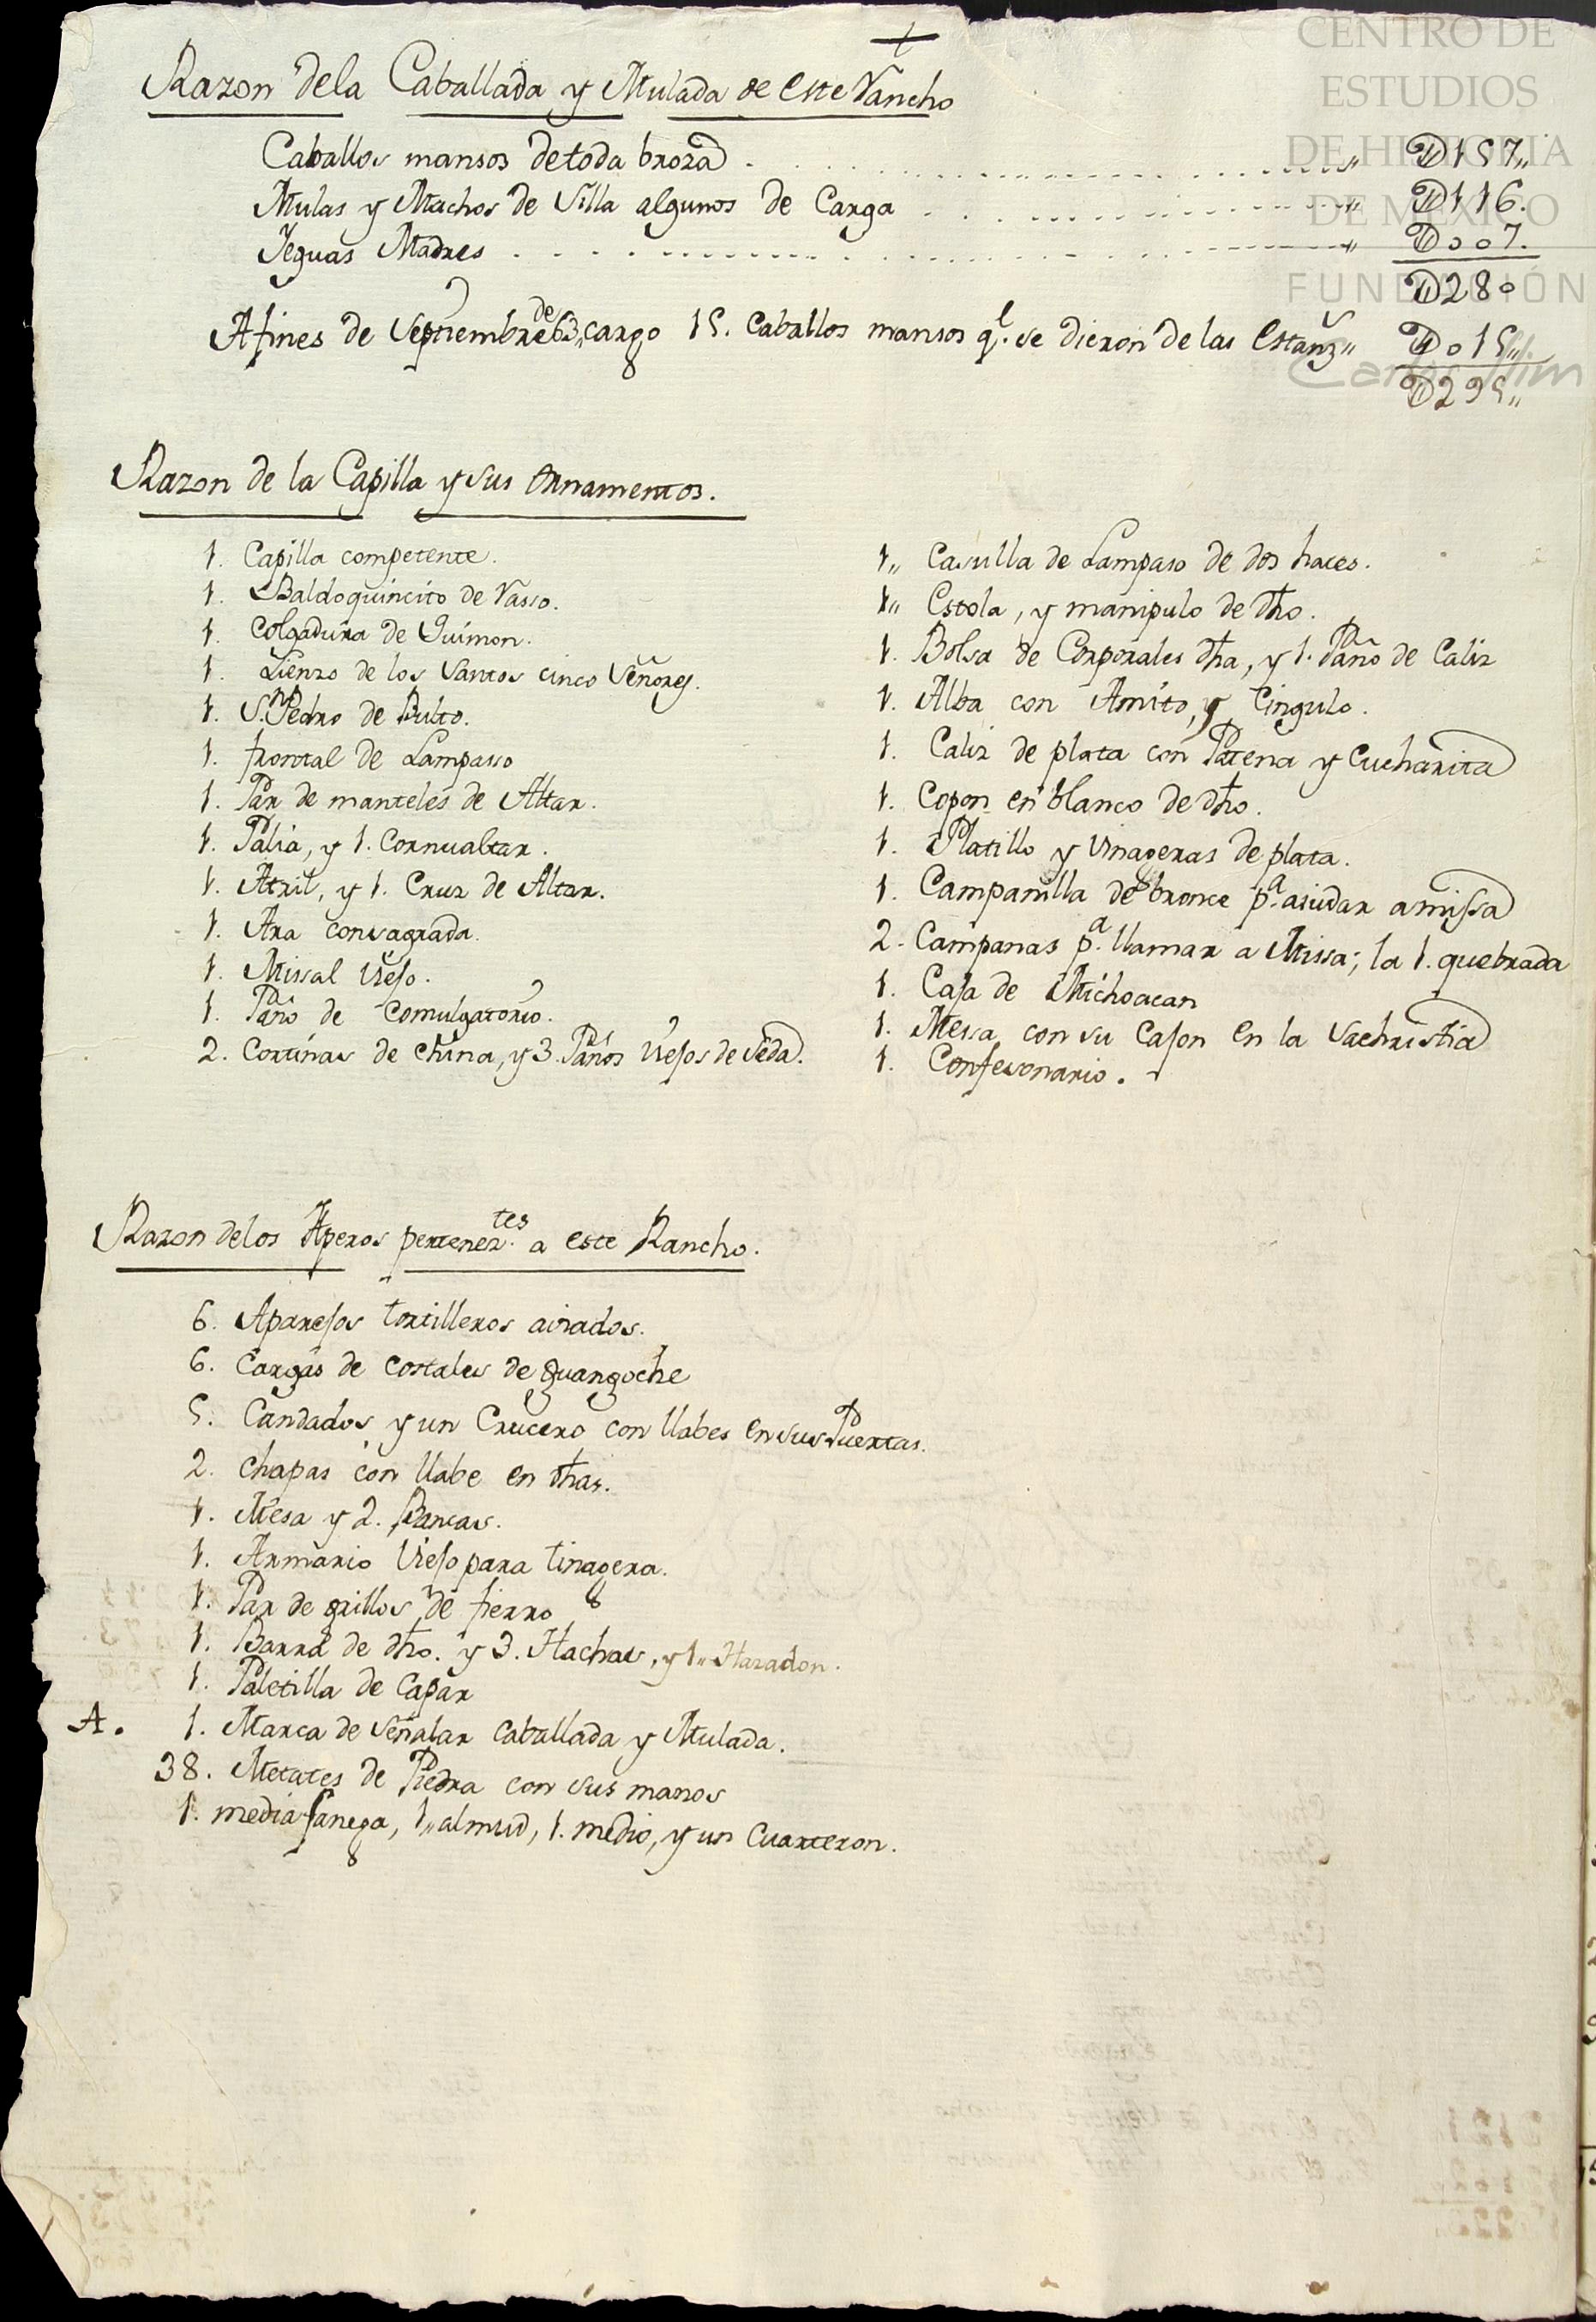 +
Razon dela Caballada y Mulada de este Rancho
Caballos mansos detoda broza . . . . . . . . . . . . . . . . . „ D157„
Mulas y Machos de Silla algunos de Carga . . . . . . . . . . . . „ D116.
Yeguas Madres . . . . . . . . . . . . . . . . . . . . . . . „ D007.
D280
A fines de Septiembre de 63, cargo 15. Caballos mansos q.e se dieron de las Estanz.s „ D015„
D295„
Razon de la Capilla y sus Ornamentos.
1. Capilla competente.
1. Baldoquincito de Rasso.
1. Colgadura de Quimon.
1. Lienzo de los Santos cinco Señores.
1. S.n Pedro de Bulto.
1. frontal de Lampasso
1. Par de manteles de Altar.
1. Palia, y 1. Cornualtar.
1. Atril, y 1. Cruz de Altar.
1. Ara consagrada.
1. Missal viejo.
1. Paño de Comulgatorio.
2. Cortinas de china, y 3. Paños viejos de seda.
1„ Casulla de Lampaso de dos haces.
1„ Estola, y manipulo de dho.
1. Bolsa de Corporales dha, y 1. Paño de Caliz
1. Alba con Amito, y Cingulo.
1. Caliz de plata con Patena y Cucharita
1. Copon en blanco de dho.
1. Platillo y vinageras de plata.
1. Campanilla de bronce p.a aiudar a missa
2. Campanas p.a llamar a Missa; la 1. quebrada
1. Caja de Michoacan
1. Messa con su Cajon en la Sachristia
1. Confesonario.
Razon delos Aperos pertenez.tes a este Rancho.
6. Aparejos tortilleros aviados.
6. Cargas de costales de guangoche
5. Candados y un Crucero con llabes en sus Puertas.
2. Chapas con llabe en dhas.
1. Mesa y 2. Bancas.
1. Armario viejo para tinagera.
1. Par de grillos de fierro
1. Barra de dho. y 3. Hachas, y 1„ Hazadon.
1. Paletilla de Capar
A. 1. Marca de señalar caballada y Mulada.
38. Metates de Piedra con sus manos
1. media fanega, 1„ almud, 1. medio, y un Cuarteron.
CENTRO DE
ESTUDIOS
DE HISTORIA
DE MÉXICO
FUNDACIÓN
Carlos Slim